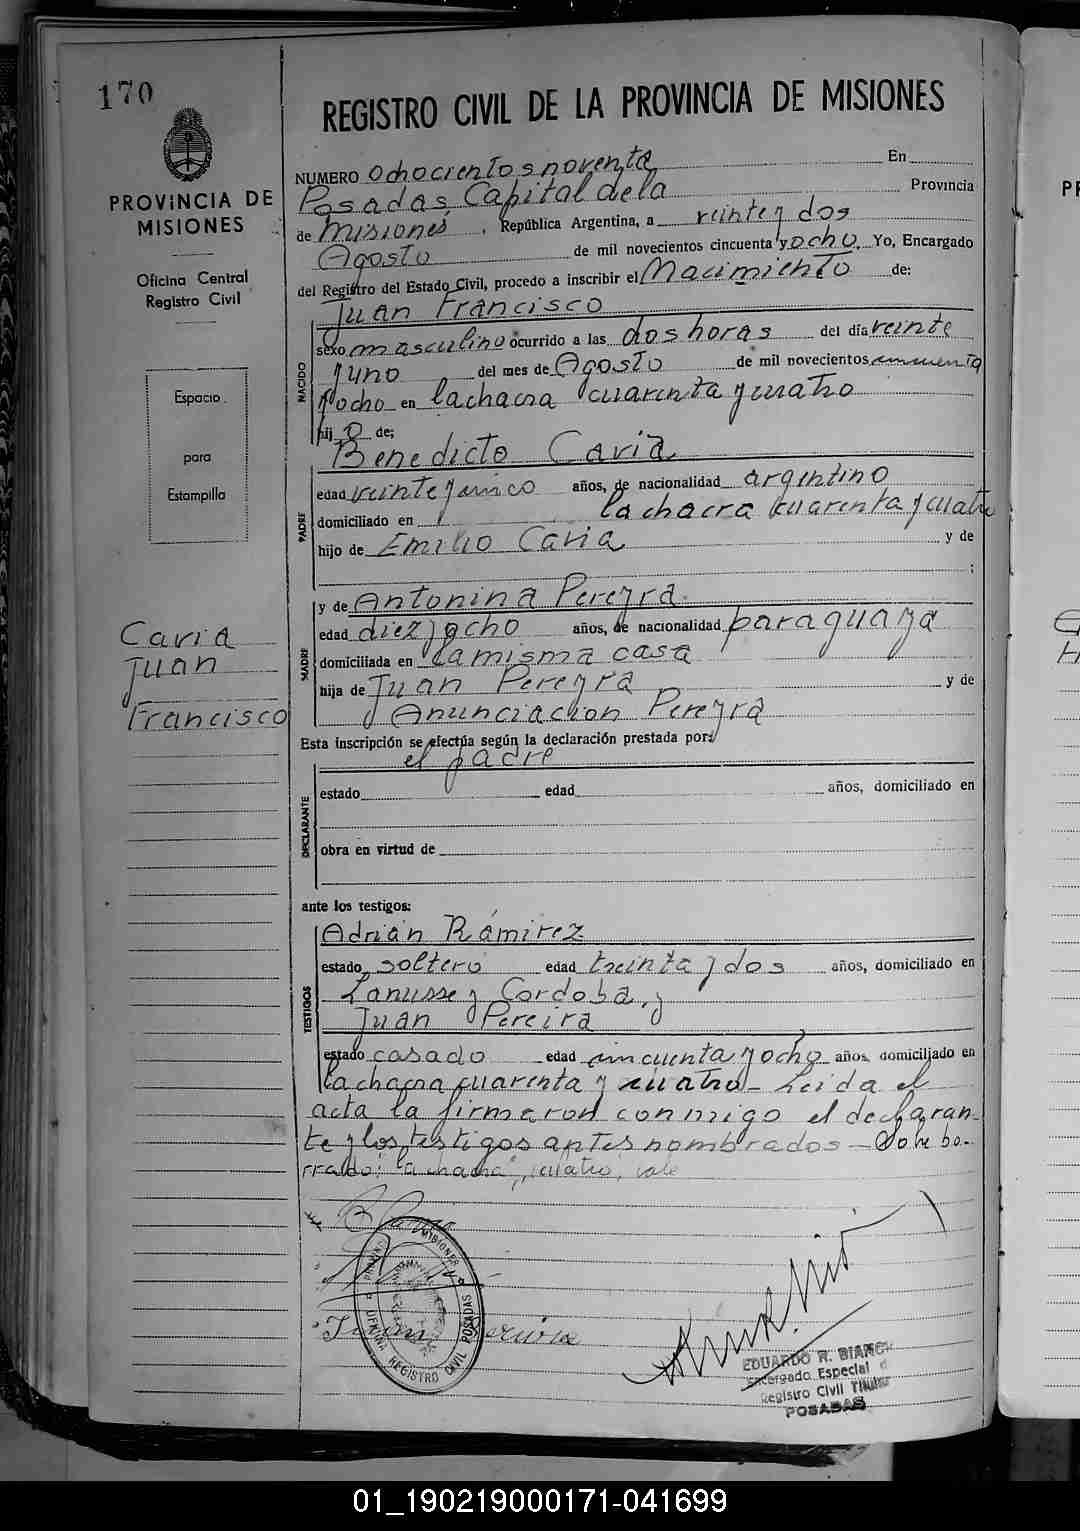 170
PROVINCIA DE
MISIONES
Oficina Central
Registro Civil
Espacio
para
Estampilla
Cavia
Juan
Francisco
REGISTRO CIVIL DE LA PROVINCIA DE MISIONES
NUMERO ochocientos noventa En
Posadas, Capital de la Provincia
de Misiones, República Argentina, a veinte y dos
Agosto de mil novecientos cincuenta y ocho. Yo, Encargado
del Registro del Estado Civil, procedo a inscribir el Nacimiento de:
Juan Francisco
NACIDO
sexo masculino ocurrido a las dos horas del día veinte
y uno del mes de Agosto de mil novecientos cincuenta
y ocho en la chacra cuarenta y cuatro
hij o de;
Benedicto Cavia
PADRE
edad veinte y cinco años, de nacionalidad argentino
domiciliado en la chacra cuarenta y cuatro
hijo de Emilio Cavia y de
;
y de Antonina Pereyra
MADRE
edad diez y ocho años, de nacionalidad paraguaya
domiciliada en la misma casa
hija de Juan Pereyra y de
Anunciacion Pereyra
Esta inscripción se efectúa según la declaración prestada por:
el padre
DECLARANTE
estado edad años, domiciliado en
obra en virtud de
ante los testigos:
Adrian Rámirez
TESTIGOS
estado soltero edad treinta y dos años, domiciliado en
Lanusse y Cordoba, y
Juan Pereira
estado casado edad cincuenta y ocho años, domiciliado en
la chacra cuarenta y cuatro - Leida el
acta la firmeron conmigo el declaran-
te y los testigos antes nombrados - Sobre bo-
rrado: "la chacra", cuatro, vale
PROVINCIA MISIONES
OFICINA REGISTRO CIVIL POSADAS
Juan Pereira
EDUARDO R. BIANCHI
Encargado Especial d
Registro Civil Titular
POSADAS
01_190219000171-041699